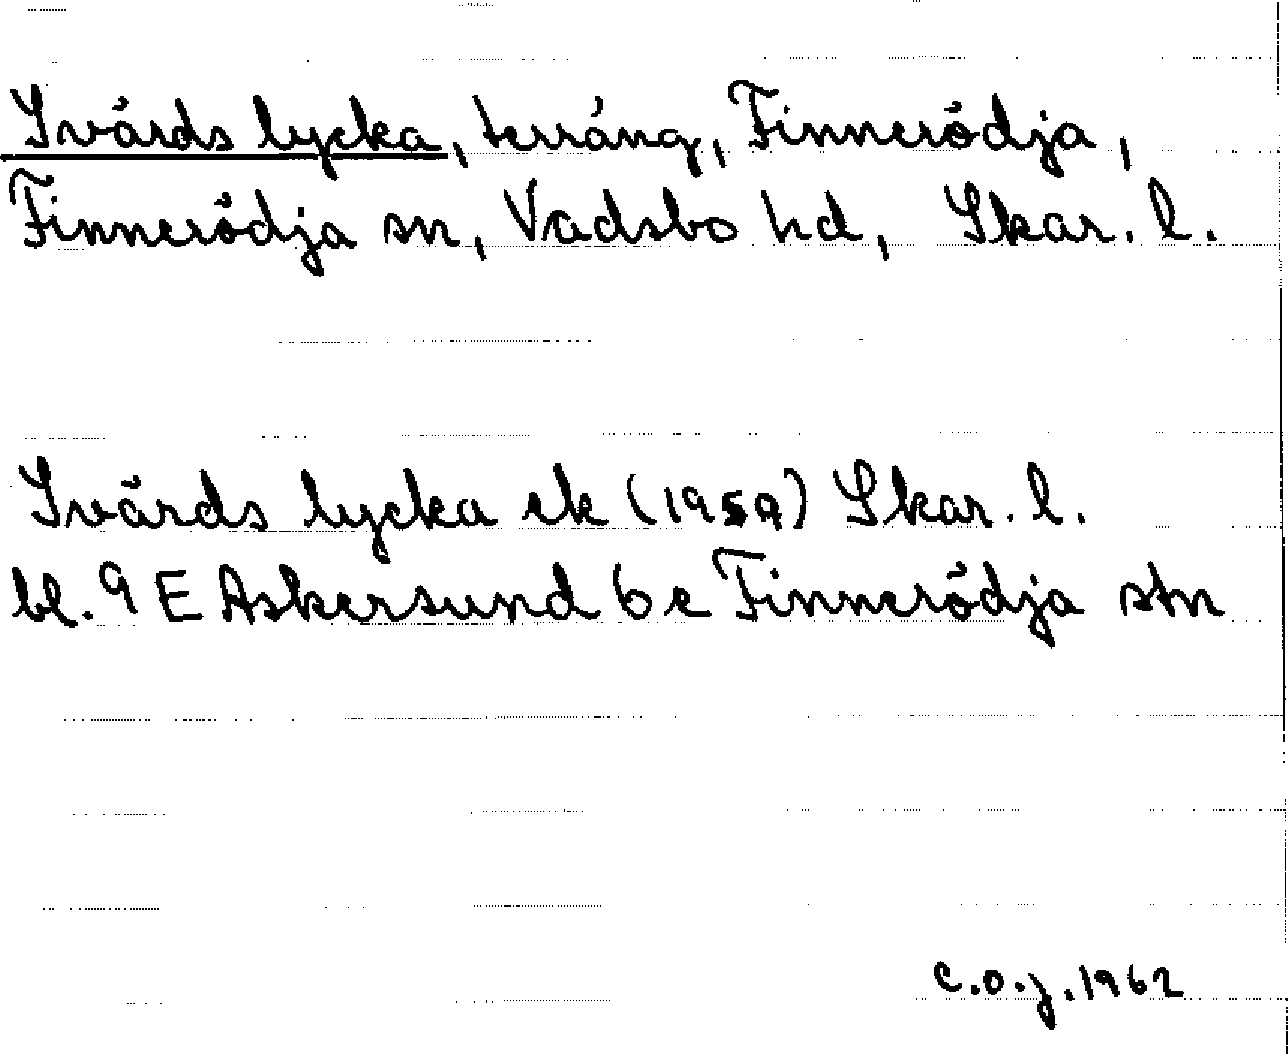 Svärds lycka, terräng, Finnerödja,
Finnerödja sn, Vadsbo hd, Skar. l.
Svärds lycka ek (1959) Skar. l.
bl. 9 E Askersund 6 c Finnerödja stn
C.O.J. 1962